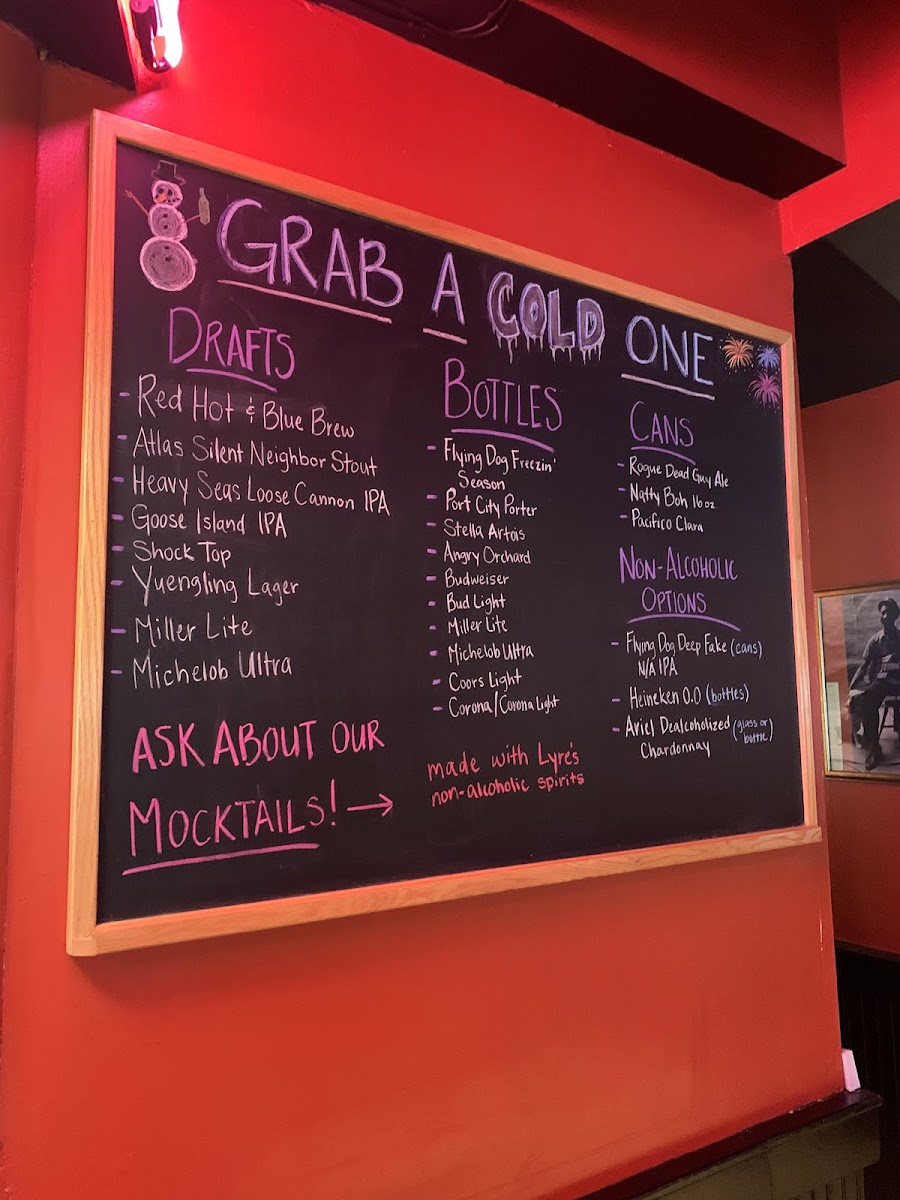 GRAB A COLD ONE
DRAFTS
- Red Hot & Blue Brew
- Atlas Silent Neighbor Stout
- Heavy Seas Loose Cannon IPA
- Goose Island IPA
- Shock Top
- Yuengling Lager
- Miller Lite
- Michelob Ultra
ASK ABOUT OUR
MOCKTAILS! →
BOTTLES
- Flying Dog Freezin'
Season
- Port City Porter
- Stella Artois
- Angry Orchard
- Budweiser
- Bud Light
- Miller Lite
- Michelob Ultra
- Coors Light
- Corona/Corona Light
made with Lyre's
non-alcoholic spirits
CANS
- Rogue Dead Guy Ale
- Natty Boh 16 oz.
- Pacifico Clara
NON-ALCOHOLIC
OPTIONS
- Flying Dog Deep Fake (cans)
N/A IPA
- Heineken 0.0 (bottles)
- Ariel Dealcoholized (glass or
Chardonnay bottle)